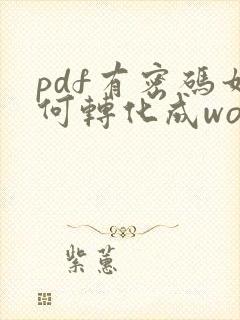 pdf有密碼如
何轉化成wo
紫蕙